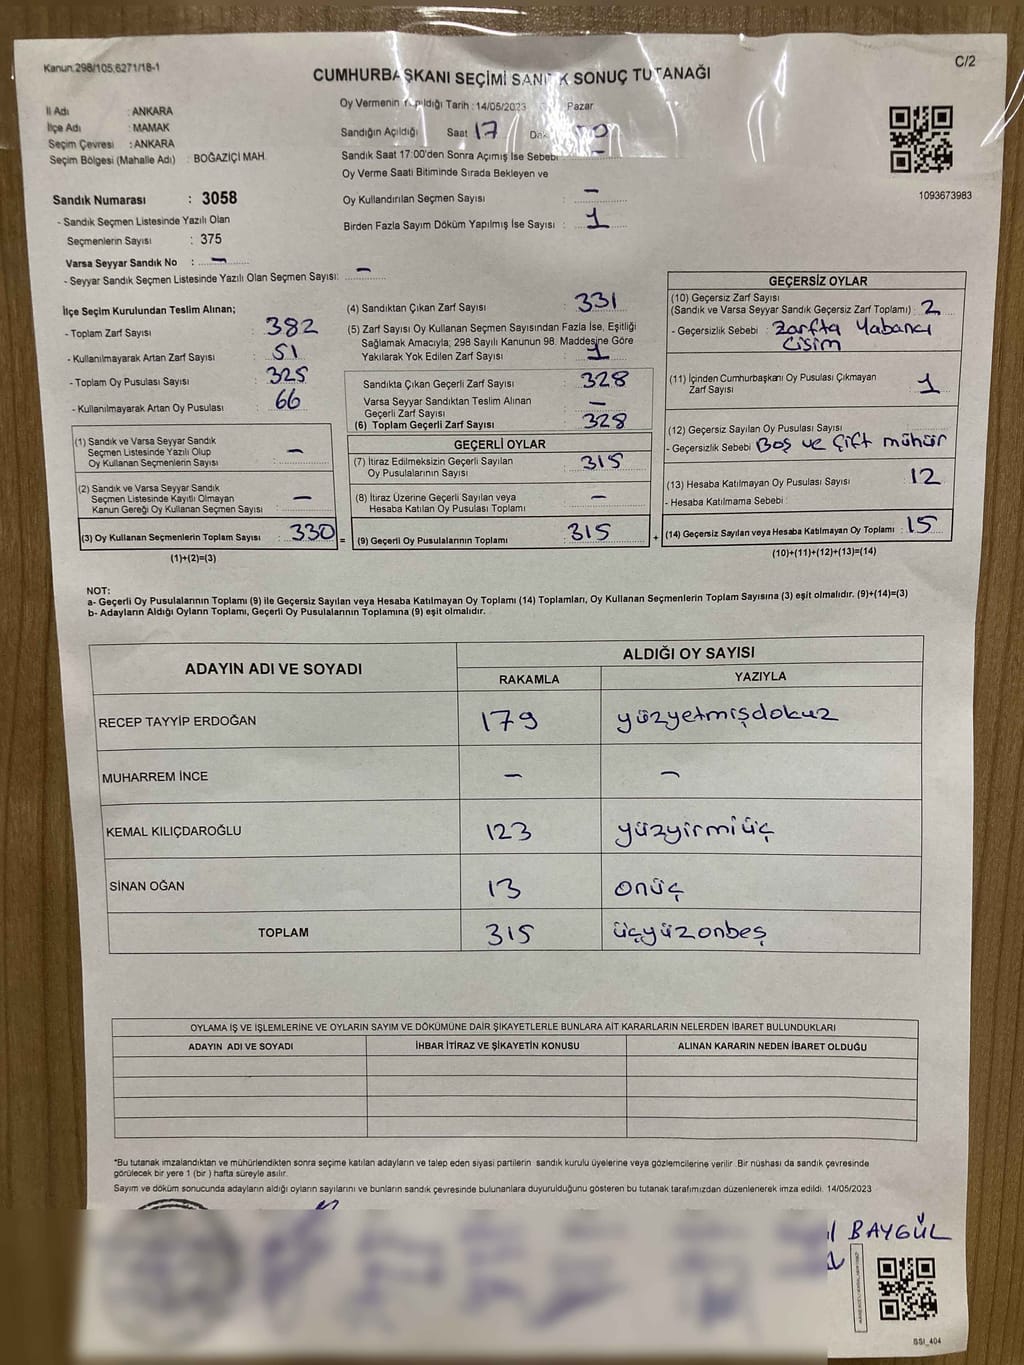 Kanun:298/105,6271/18-1
C/2
CUMHURBAŞKANI SEÇİMİ SANDIK SONUÇ TUTANAĞI
İl Adı : ANKARA
İlçe Adı : MAMAK
Seçim Çevresi : ANKARA
Seçim Bölgesi (Mahalle Adı) : BOĞAZİÇİ MAH.
Oy Vermenin Yapıldığı Tarih : 14/05/2023 Pazar
Sandığın Açıldığı Saat 17
Sandık Saat 17:00'den Sonra Açımış İse Sebebi –
Oy Verme Saati Bitiminde Sırada Bekleyen ve
Oy Kullandırılan Seçmen Sayısı : –
Birden Fazla Sayım Döküm Yapılmış İse Sayısı : 1
1093673983
Sandık Numarası : 3058
- Sandık Seçmen Listesinde Yazılı Olan
Seçmenlerin Sayısı : 375
Varsa Seyyar Sandık No : –
- Seyyar Sandık Seçmen Listesinde Yazılı Olan Seçmen Sayısı: –
İlçe Seçim Kurulundan Teslim Alınan;
- Toplam Zarf Sayısı : 382
- Kullanılmayarak Artan Zarf Sayısı : 51
- Toplam Oy Pusulası Sayısı : 325
- Kullanılmayarak Artan Oy Pusulası : 66
(1) Sandık ve Varsa Seyyar Sandık
Seçmen Listesinde Yazılı Olup
Oy Kullanan Seçmenlerin Sayısı : –
(2) Sandık ve Varsa Seyyar Sandık
Seçmen Listesinde Kayıtlı Olmayan
Kanun Gereği Oy Kullanan Seçmen Sayısı : –
(3) Oy Kullanan Seçmenlerin Toplam Sayısı : 330
(1)+(2)=(3)
(4) Sandıktan Çıkan Zarf Sayısı : 331
(5) Zarf Sayısı Oy Kullanan Seçmen Sayısından Fazla İse, Eşitliği
Sağlamak Amacıyla; 298 Sayılı Kanunun 98. Maddesine Göre
Yakılarak Yok Edilen Zarf Sayısı : 1
Sandıkta Çıkan Geçerli Zarf Sayısı : 328
Varsa Seyyar Sandıktan Teslim Alınan
Geçerli Zarf Sayısı : –
(6) Toplam Geçerli Zarf Sayısı : 328
GEÇERLİ OYLAR
(7) İtiraz Edilmeksizin Geçerli Sayılan
Oy Pusulalarının Sayısı : 315
(8) İtiraz Üzerine Geçerli Sayılan veya
Hesaba Katılan Oy Pusulası Toplamı : –
= (9) Geçerli Oy Pusulalarının Toplamı : 315
GEÇERSİZ OYLAR
(10) Geçersiz Zarf Sayısı
(Sandık ve Varsa Seyyar Sandık Geçersiz Zarf Toplamı) : 2
- Geçersizlik Sebebi : Zarfta Yabancı
Cisim
(11) İçinden Cumhurbaşkanı Oy Pusulası Çıkmayan
Zarf Sayısı : 1
(12) Geçersiz Sayılan Oy Pusulası Sayısı :
- Geçersizlik Sebebi Boş ve Çift mühür
(13) Hesaba Katılmayan Oy Pusulası Sayısı : 12
- Hesaba Katılmama Sebebi :
+ (14) Geçersiz Sayılan veya Hesaba Katılmayan Oy Toplamı : 15
(10)+(11)+(12)+(13)=(14)
NOT:
a- Geçerli Oy Pusulalarının Toplamı (9) ile Geçersiz Sayılan veya Hesaba Katılmayan Oy Toplamı (14) Toplamları, Oy Kullanan Seçmenlerin Toplam Sayısına (3) eşit olmalıdır. (9)+(14)=(3)
b- Adayların Aldığı Oyların Toplamı, Geçerli Oy Pusulalarının Toplamına (9) eşit olmalıdır.
ADAYIN ADI VE SOYADI
ALDIĞI OY SAYISI
RAKAMLA YAZIYLA
RECEP TAYYİP ERDOĞAN 179 yüzyetmişdokuz
MUHARREM İNCE – –
KEMAL KILIÇDAROĞLU 123 yüzyirmiüç
SİNAN OĞAN 13 onüç
TOPLAM 315 üçyüzonbeş
OYLAMA İŞ VE İŞLEMLERİNE VE OYLARIN SAYIM VE DÖKÜMÜNE DAİR ŞİKAYETLERLE BUNLARA AİT KARARLARIN NELERDEN İBARET BULUNDUKLARI
ADAYIN ADI VE SOYADI İHBAR İTİRAZ VE ŞİKAYETİN KONUSU ALINAN KARARIN NEDEN İBARET OLDUĞU
*Bu tutanak imzalandıktan ve mühürlendikten sonra seçime katılan adayların ve talep eden siyasi partilerin sandık kurulu üyelerine veya gözlemcilerine verilir .Bir nüshası da sandık çevresinde
görülecek bir yere 1 (bir ) hafta süreyle asılır.
Sayım ve döküm sonucunda adayların aldığı oyların sayılarını ve bunların sandık çevresinde bulunanlara duyurulduğunu gösteren bu tutanak tarafımızdan düzenlenerek imza edildi. 14/05/2023
BAYGÜL
SSI_404